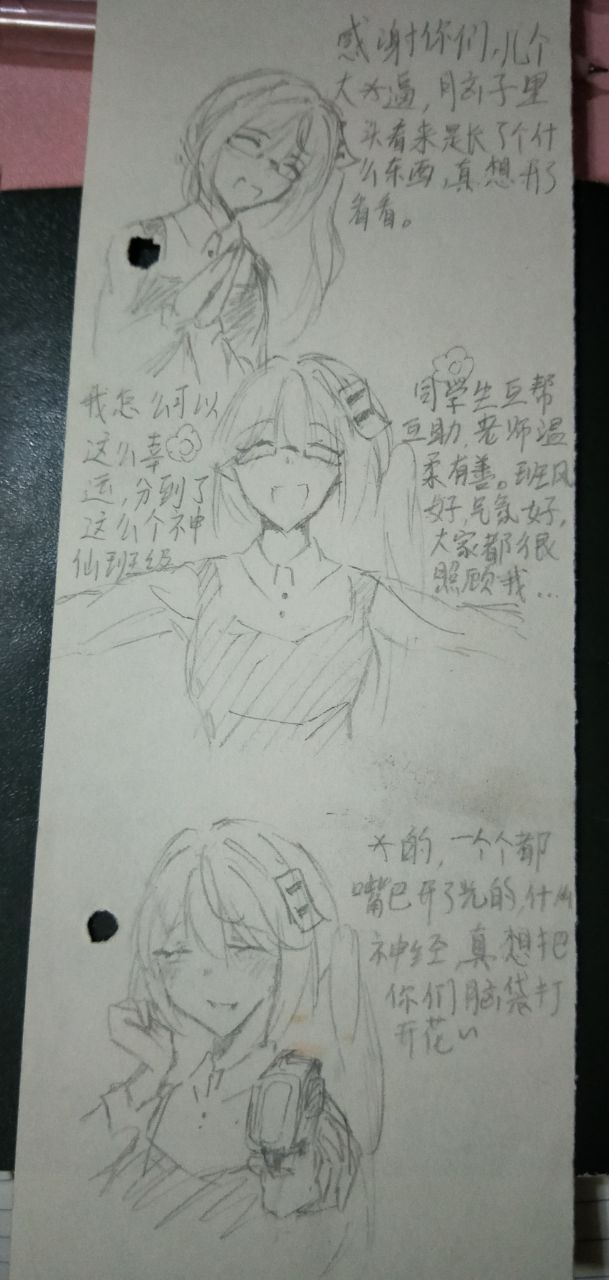 感谢你们，几个
大×逼，脑子里
头看来是长了个什
么东西，真想开了
看看。
我怎么可以
这么幸
运，分到了
这么个神
仙班级
同学生互帮
互助，老师温
柔有善。班风
好，气氛好，
大家都很
照顾我...
×的，一个个都
嘴巴开了光的，什么
神经，真想把
你们脑袋打
开花~